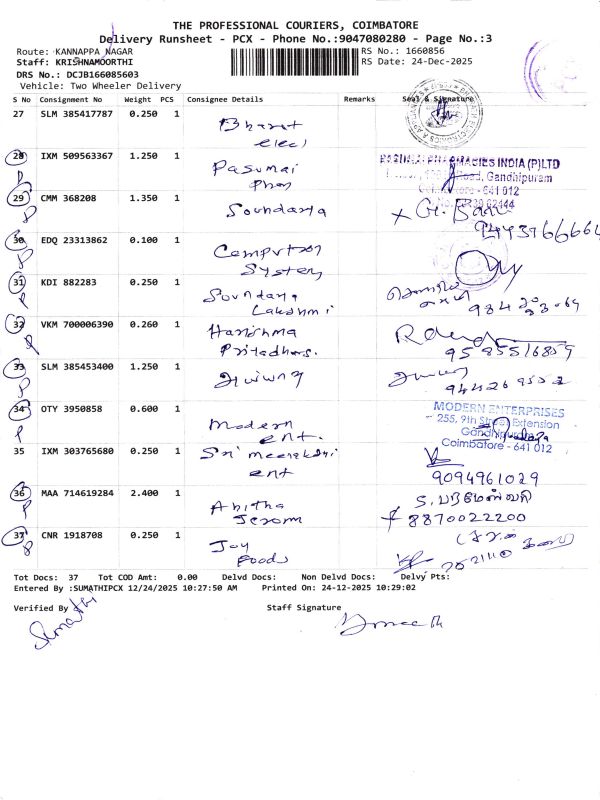 THE PROFESSIONAL COURIERS, COIMBATORE
Delivery Runsheet - PCX - Phone No.:9047080280 - Page No.:3
Route: KANNAPPA NAGAR
RS No.: 1660856
Staff: KRISHNAMOORTHI
RS Date: 24-Dec-2025
DRS No.: DCJB166085603
Vehicle: Two Wheeler Delivery
S No Consignment No Weight PCS Consignee Details Remarks Seal & Signature
27 SLM 385417787 0.250 1 Bharat
elec
28 IXM 509563367 1.250 1 Pasumai
Phar
PHARMACIES INDIA (P)LTD
Road, Gandhipuram
Coimbatore - 641 012
29 CMM 368208 1.350 1 Soundarya
30 EDQ 23313862 0.100 1 Computron
System
31 KDI 882283 0.250 1 Soundarya
Lakshmi
32 VKM 700006390 0.260 1 Harishma
9585516859
33 SLM 385453400 1.250 1
34 OTY 3950858 0.600 1 Modern
ent.
MODERN ENTERPRISES
255, 9th Street Extension
Gandhipuram
Coimbatore - 641 012
35 IXM 303765680 0.250 1 Sri meenakshi
ent
9094961029
36 MAA 714619284 2.400 1 Anitha
Jerom
8870022200
37 CNR 1918708 0.250 1 Joy
Foods
Tot Docs: 37 Tot COD Amt: 0.00 Delvd Docs: Non Delvd Docs: Delvy Pts:
Entered By :SUMATHIPCX 12/24/2025 10:27:50 AM Printed On: 24-12-2025 10:29:02
Verified By Staff Signature
Sumathi